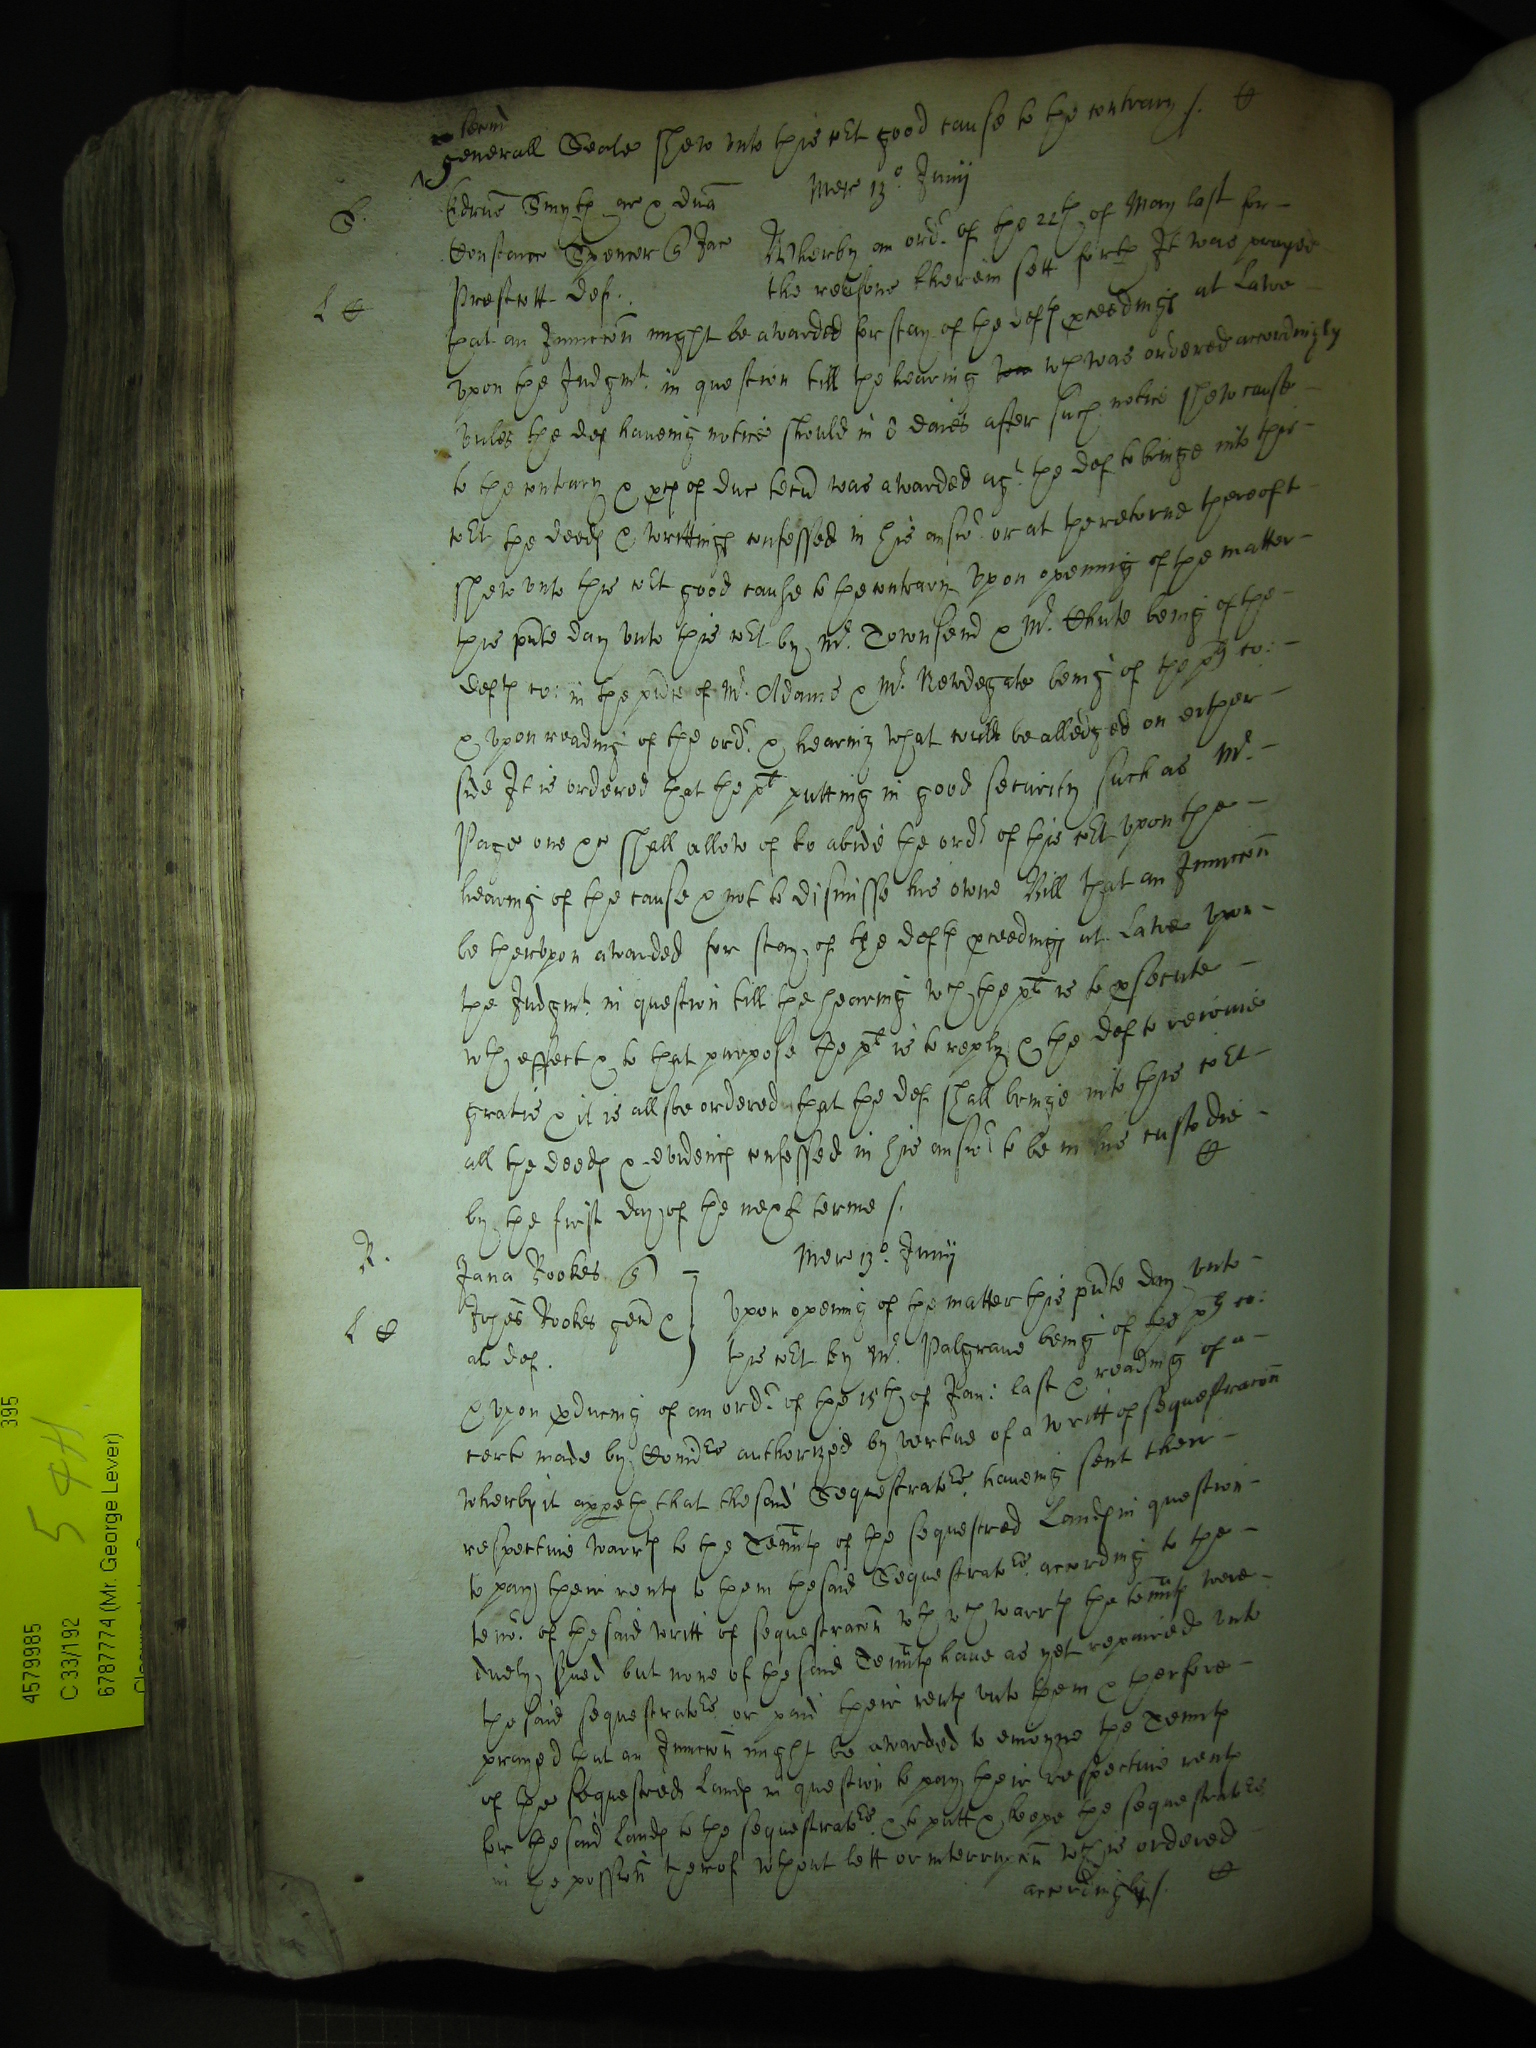 term
generall Seale shew unto this cort good cause to the contrary /.
Mer 13o Junij
S.
Edrus Smyth ar & dna
Constance Spencer q Jac
Prescott def.
Wherby an ordr of the 22th of May last for
the reasons therein sett forth It was prayed
that an Iniunccon might be awarded for stay of the defts pceedings at Lawe
upon the Judgmt in question till the hearing wch was ordered accordingly
unles the def haveing notice should in 8 daies after such notice shew cause
to the contrary & pces of duc tecu was awarded agt the def to bringe into this
cort the deeds & writtings confessed in his answr or at the retorne thereof
shew unto this cort good cause to the contrary Upon opening of the matter
this pnte day unto this cort by Mr Townsend & Mr Chute being of the
defts co: in the pnce of Mr Adams & Mr Newdegate being of the plts co:
& upon reading of the ordr & hearing what could be alledged on either
side It is ordered that the plt putting in good security such as Mr
Page one &c shall allow of to abide the ordr of this cort upon the
hearing of the cause & not to dismisse his owne Bill that an Iniunccon
be therupon awarded for stay of the defts pceedings at Lawe upon
the Judgmt in question till the hearing wch the plt is to psecute
wth effect & to that purpose the plt is to reply & the def to reioine
gratis & it is allsoe ordered that the def shall bringe into this cort
all the deeds & evidencs confessed in his answr to be in his custodie
by the first day of the next terme /.
R.
Mer 13o Junij
Jana Rookes q
Johes Rookes gen &
al def.
Upon opening of the matter this pnte day unto
this cort by Mr Palgrave being of the plts co:
& upon pducing of an ordr of the 15th of Jan: last & reading of a
cert made by Comrs authorized by vertue of a writt of sequestracon
wherby it appeth that the said Sequestrators haveing sent their
respective warrts to the Tennts of the sequestred Lands in question
to pay their rents to them the said Sequestrators according to the
tenor of the said writt of sequestracon wth wch warrts the tennts were
duely sved but none of the said Tennts have as yet repaired unto
the said sequestrators or paid their rents unto them & therfore
prayed that an Iniunccon might be awarded to enioyne the Tennts
of the sequestred Lands in question to pay their respective rents
for the said Lands to the sequestrators & to putt & keepe the sequestrators
in the possion therof wthout lett or interrupcon wch is ordered
accordingly /.
4579985
395
C 33/192
6787774 (Mr. George Lever)